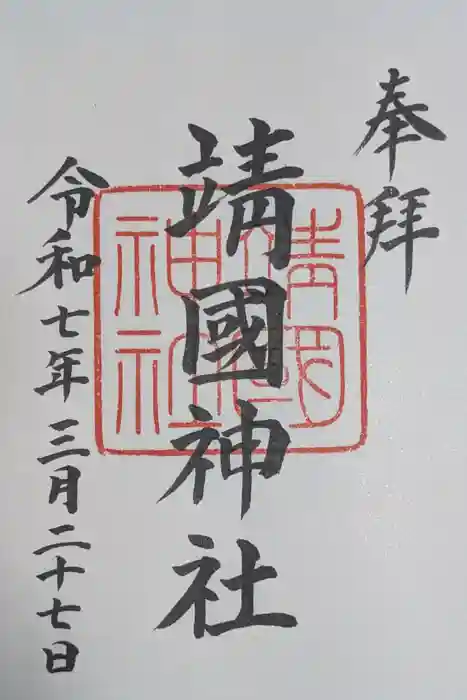 奉拜
靖國神社
靖國神社
令和七年三月二十七日